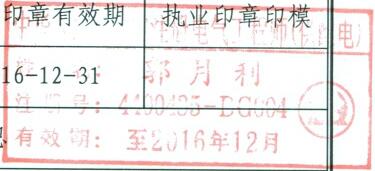 印章有效期 执业印章印模
电气工程师(供配电)
16-12-31
郭月利
号: 4400435-DG004
有效期: 至2016年12月